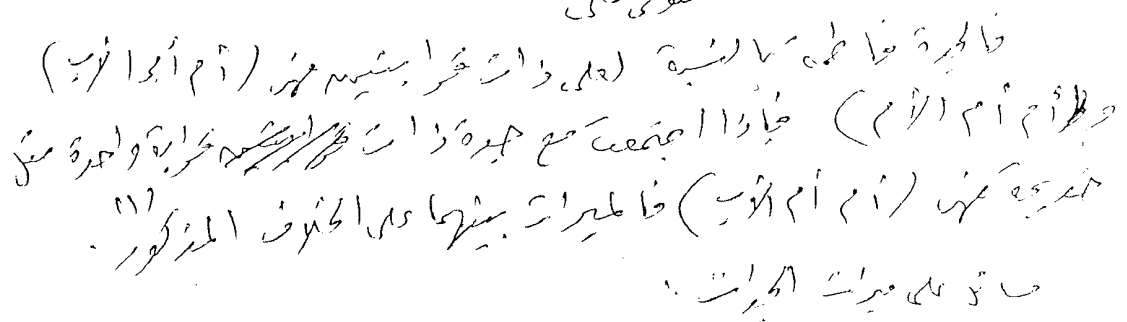 فالجدة فاطمة بالنسبة لعلى ذات قرابتين فهى (أم أبو الأب)
و (أم أم الأم) فإذا اجتمعت مع جدة ذات قرابة واحدة مثل
خديجة فهى (أم أم الأب) فالميراث بينهما على الخلاف المذكور (١).
مسائل على ميراث الجدات :